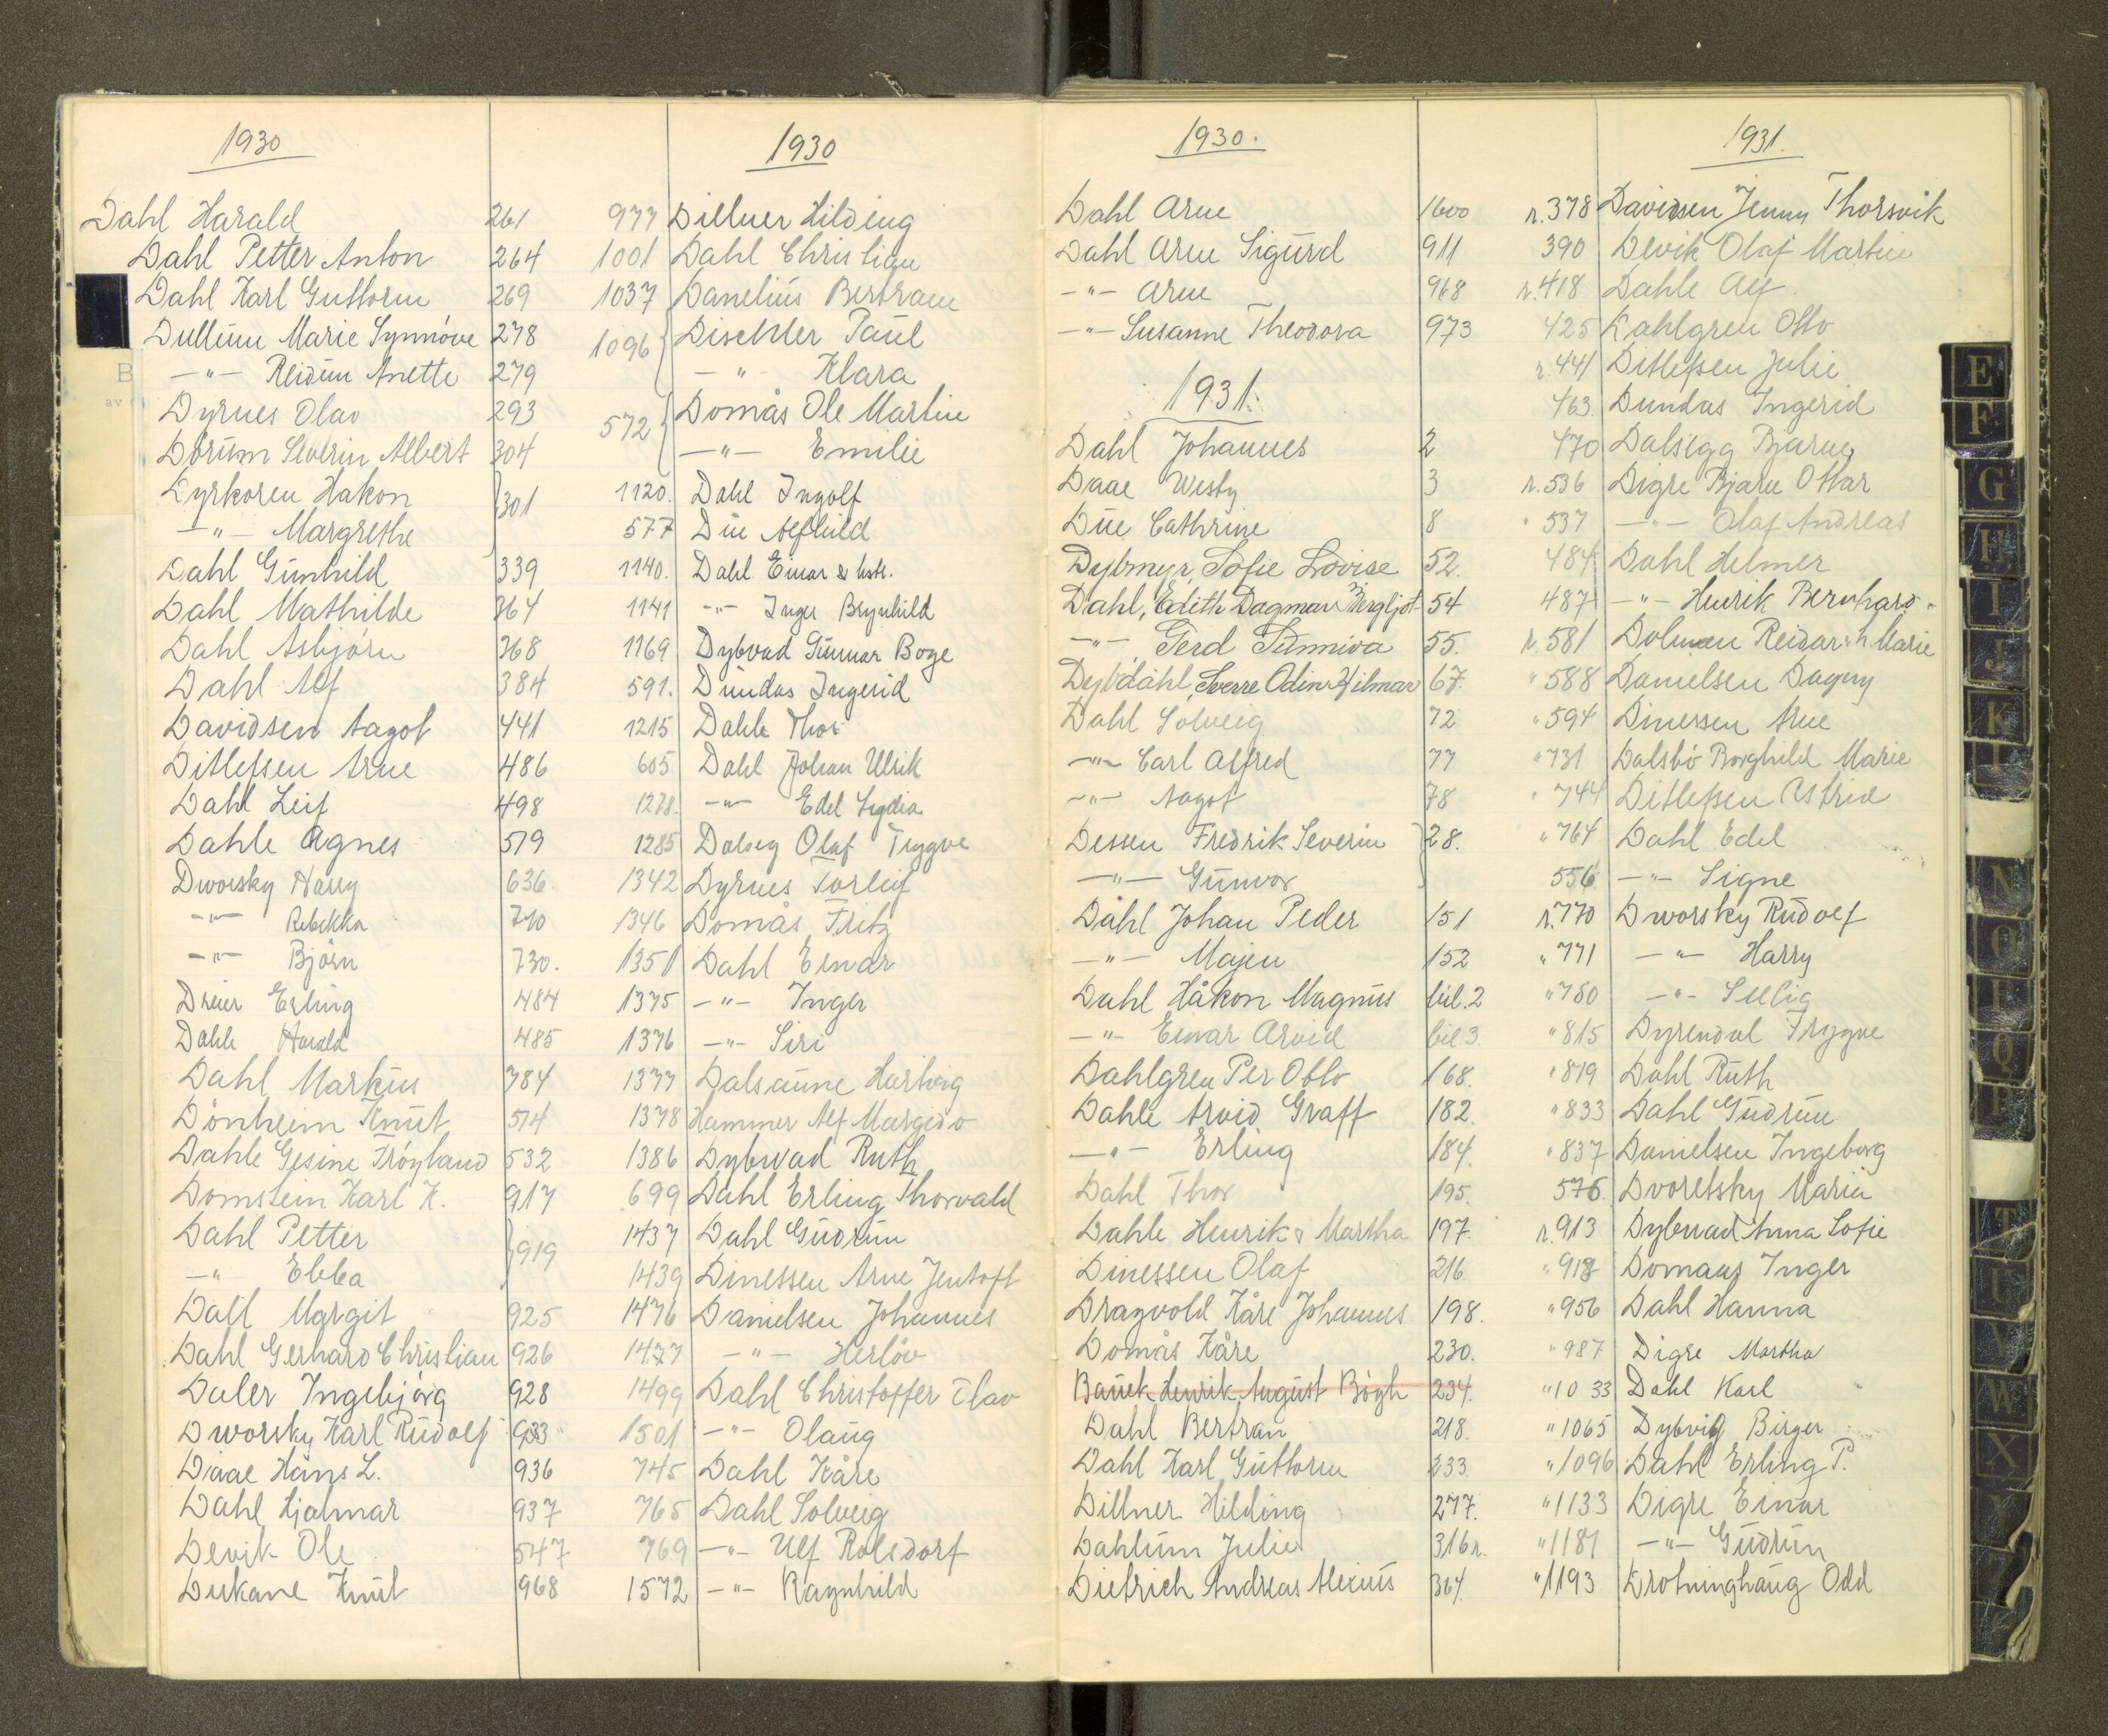 1930
Dahl Harald 261
Dahl Petter Anton 264
Dahl Karl Guttorm 269
Dullum Marie Synnöve 278
-"- Reidun Anette 279
Dyrnes Olav 293
Dörum Severin Albert 304
Dyrkoren Hakon 301
-"- Margrethe
Dahl Gunhild 339
Dahl Mathilde 364
Dahl Asbjørn 368
Dahl Alf 384
Davidsen Aagot 441
Ditlefsen Arne 486
Dahl Leif 498
Dahle Agnes 579
Dworsky Harry 636
-"- Rebekka 710
-"- Björn 730.
Dreier Erling 484
Dahle Harald 485
Dahl Markus 784
Dönheim Knut 514
Dahle Gesine Fröyland 532
Domstein Karl K. 917
Dahl Petter 919
-"- Ebba
Dall Margit 925
Dahl Gerhard Christian 926
Daler Ingebjörg 928
Dworsky Karl Rudolf 933
Daae Hans L. 936
Dahl Hjalmar 937
Devik Ole 547
Dukane Knut 968
1930
977 Dillner Hilding
1001 Dahl Christian
1037 Danelius Bertram
1096 Dischler Paul
-"- Klara
572 Domås Ole Martin
-"- Emilie
1120. Dahl Ingolf
577 Due Alfhild
1140. Dahl Einar & hstr.
1141 -"- Inger Brynhild
1169 Dybvad Gunnar Boge
591. Dundas Ingerid
1215 Dahle Thor
605 Dahl Johan Ulrik
1278. -"- Edel Lydia
1285 Dalseg Olaf Tryggve
1342 Dyrnes Torleif
1346 Domås Fritz
1351 Dahl Einar
1375 -"- Inger
1376 -"- Siri
1377 Dalsaune Harborg
1378 Hammer Alf Margido
1386 Dybwad Ruth
699 Dahl Erling Thorvald
1437 Dahl Gudrun
1439 Dinessen Arne Jentoft
1476 Danielsen Johannes
1477 -"- Herlöv
1499 Dahl Christoffer Elav
1501 -"- Olaug
745 Dahl Kåre
765 Dahl Solveig
769 -"- Ulf Rolsdorf
1572 -"- Ragnhild
1930.
Dahl Arne 1600
Dahl Arne Sigurd 911
-"- Arne 968
-"- Susanne Theodora 973
1931.
Dahl Johannes 2
Daae Westy 3
Due Cathrine 8
Dybmyr, Sofie Lovise 52.
Dahl, Edith Dagmar Bergljot 54
-"- Gerd Sunniva 55.
Dybdahl, Sverre Odin Hilmar 67.
Dahl Solveig 72
-"- Carl Alfred 77
-"- Aagot 78
Dessen Fredrik Severin 28.
-"- Gunvor
Dahl Johan Peder 151
-"- Majen 152
Dahl Håkon Magnus bil.2
-"- Einar Arvid bil 3.
Dahlgren Per Otto 168.
Dahle Arvid Graff 182.
-"- Erling 184.
Dahl Thor 195.
Dahle Henrik & Martha 197.
Dinessen Olaf 216
Dragvold Kåre Johannes 198.
Domås Kåre 230.
Bauck Henrik August Bögh 234.
Dahl Bertran 218.
Dahl Karl Guttorm 233.
Dillner Hilding 277.
Dahlum Julie 316 r.
Dietrich Andreas Alexius 364.
1931.
r.378 Davidsen Jenny Thorsvik
390 Devik Olaf Martin
r.418 Dahle Alf
425 Dahlgren Otto
r.441 Ditlefsen Julie
463. Dundas Ingerid
470 Dalsegg Bjarne
r.536 Digre Bjarne Ottar
" 537 -"- Olaf Andreas
484 Dahl Helmer
487 -"- Henrik Bernhard
r.581 Dolmen Reidar & h Marie
" 588 Danielsen Dagny
" 594 Dinessen Arne
" 731 Dalsbö Borghild Marie
" 744 Ditlefsen Astrid
" 764 Dahl Edel
556 -"- Signe
r.770 Dworsky Rudolf
" 771 -"- Harry
" 780 -"- Selig
" 815 Dyrendal Trygve
" 819 Dahl Ruth
" 833 Dahl Gudrun
" 837 Danielsen Ingeborg
576. Dvoretsky Maria
r.913 Dybwad Anna Sofie
" 918 Domaas Inger
" 956 Dahl Hanna
" 987 Digre Martha
" 1033 Dahl Karl
" 1065 Dybvig Birger
" 1096 Dahl Erling P.
" 1133 Digre Einar
" 1181 -"- Gudrun
" 1193 Drotninghaug Odd
B
av
E
F
G
H
I
J
K
L
N
O
P
Q
R
T
U
V
W
X
Y
Z